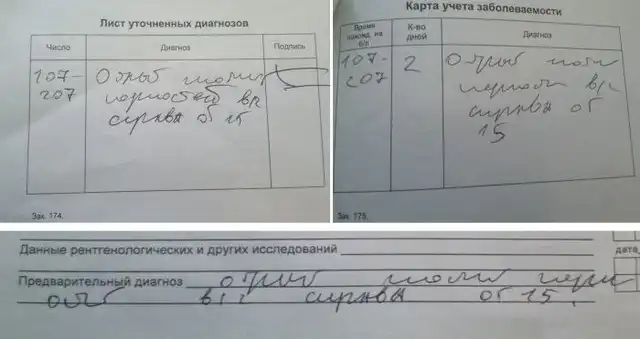 Лист уточненных диагнозов
Число Диагноз Подпись
107- Острый
207
справа от 15
Зак. 174.
Карта учета заболеваемости
Время нахожд. на б/л
К-во дней
Диагноз
107- 2 Острый
207
справа от
15
Зак. 175.
Данные рентгенологических и других исследований
дата
Предварительный диагноз острый
справа от 15.